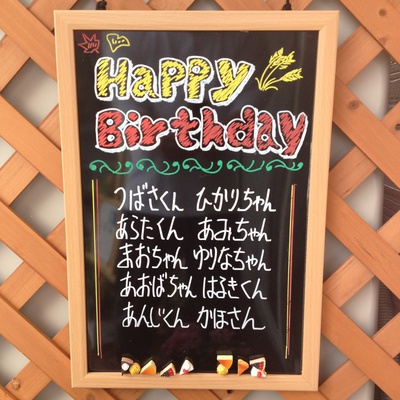 Happy
Birthday
つばさくん ひかりちゃん
あらたくん あみちゃん
まおちゃん ゆりなちゃん
あおばちゃん はるきくん
あんじくん かほさん